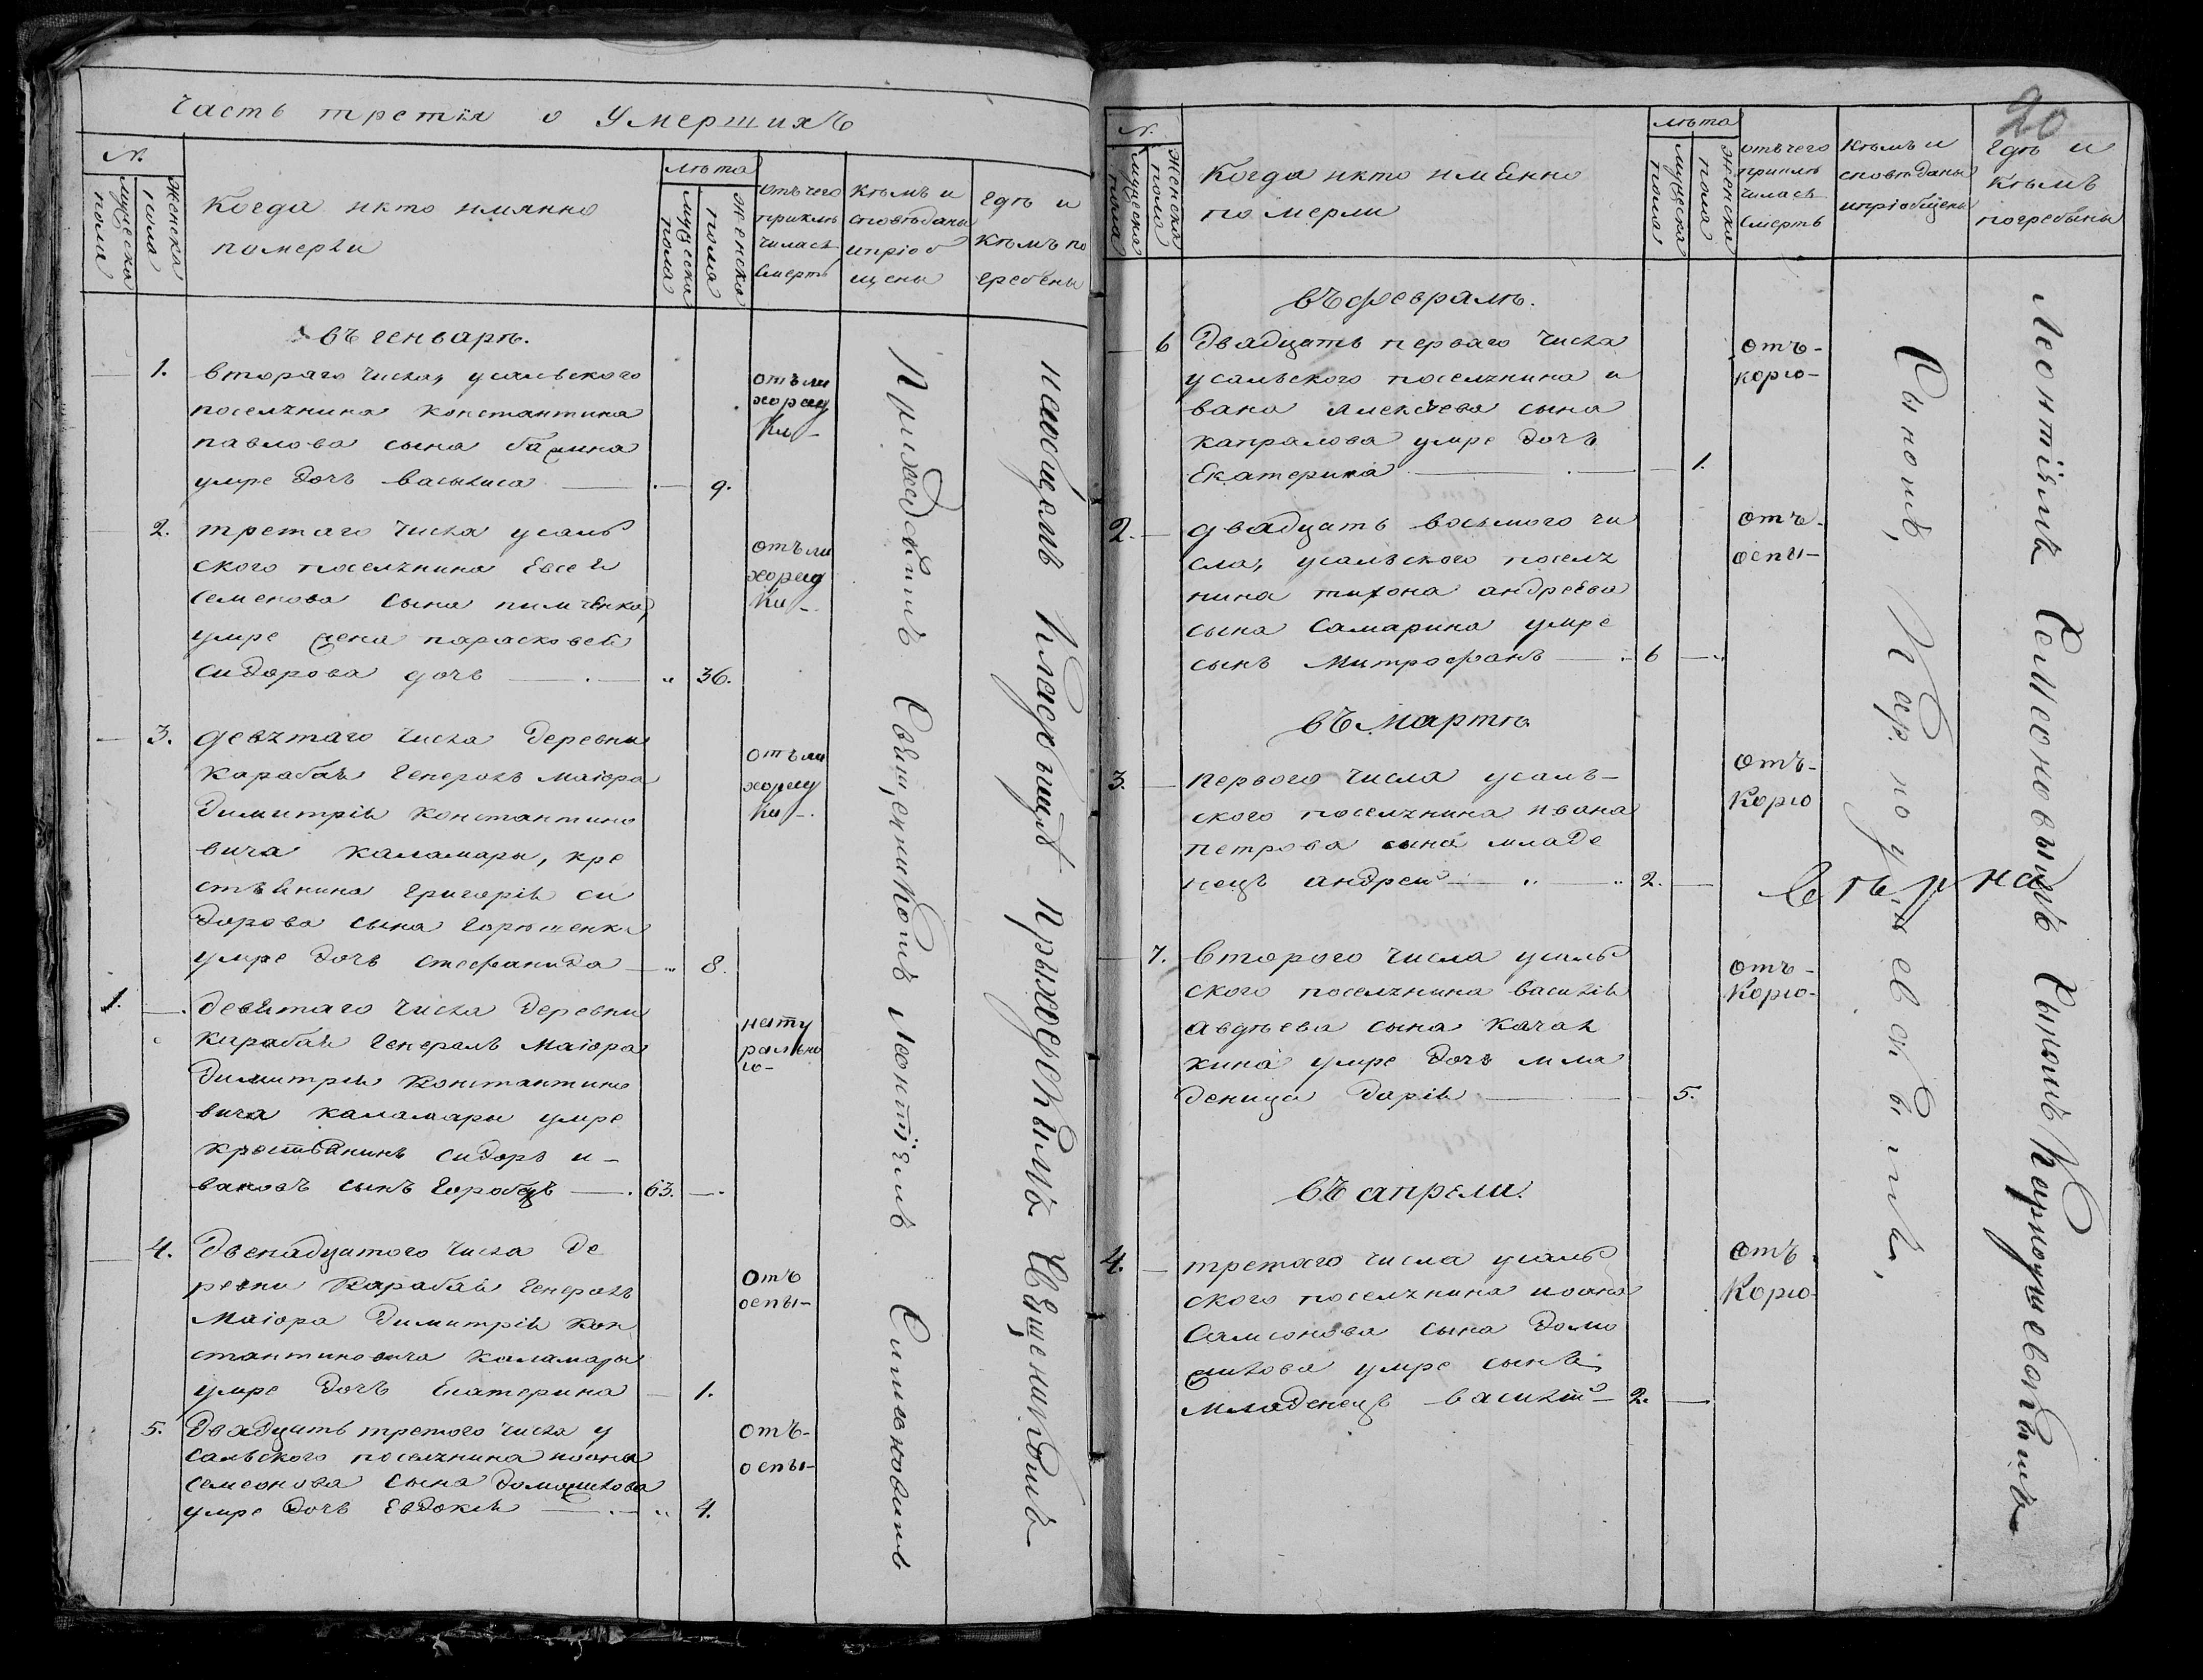 Часть третїя о умершихъ
№.
мужеска пола
женска пола
Когда икто имянно
померли
лѣта
мужеска пола
женска пола
отъчего
приклю
чиласѧ
смерть
Кѣмъ и
сповѣданы
ипріоб
щены
гдѣ и
кѣмъ по
гребены
въ генварѣ.
1. втораго числа, усальского
поселѧнина константина
павлова сына
умре дочь василиса 9.
отъ ли
хорад
ки
2. третаго числа усаль
ского поселѧнина Евсеѧ
семенова сына пимченка,
умре жена парасковеѧ
сидорова дочь 36.
отъ ли
хорад
ки
3. девѧтаго числа деревни
карабаѧ генералъ маіора
димитріѧ константино
вича каламары, кре
стьѧнина григоріѧ си
дорова сына
умре дочь стефанида 8.
отъ ли
хорад
ки
1. девѧтаго числа деревни
карабаѧ генералъ маіора
димитріѧ константино
вича каламары умре
крестьѧнинъ сидоръ и
вановъ сынъ горобецъ 63.
нату
рально
ю
4. двенадцатого числа де
ревни карабаѧ генералъ
маіора димитріѧ кон
стантиновича каламары
умре дочь Екатерина 1.
отъ
оспы
5. двадцать третого числа у
сальского поселѧнина иоана
самсонова сына
умре дочь Евдокиѧ 4.
отъ
оспы
Приходскимъ Свѧщенникомъ Леонтіемъ
на Кладбищѣ приходскимъ Свѧщенникомъ
20
№.
мужеска пола
женска пола
Когда икто имѧнно
померли
лѣта
мужеска пола
женска пола
отъчего
приклю
чиласѧ
смерть
Кѣмъ и
сповѣданы
ипріобщены
гдѣ и
кѣмъ
погребѣны
въ февралѣ.
6 двадцать перваго числа
усальского поселѧнина и
вана алексѣева сына
капралова умре дочь
Екатерина 1.
отъ
корю
2. двадцать восьмого чи
сла, усальского поселѧ
нина тихона андреева
сына самарина умре
сынъ митрофанъ 6
отъ
оспы
въ мартѣ
3. первого числа усаль
ского поселѧнина ивана
петрова сына младе
нецъ андрей 2.
отъ
корю
7. второго числа усаль
ского поселѧнина василіѧ
авдѣева сына
умре дочь мла
деница даріѧ 5.
отъ
корю
въ апрели.
4. третаго числа усаль
ского поселѧнина иоана
самсонова сына
умре сынъ
младенецъ василій 2.
отъ
корю
Сыномъ,
Леонтіемъ Семеоновымъ Сыномъ